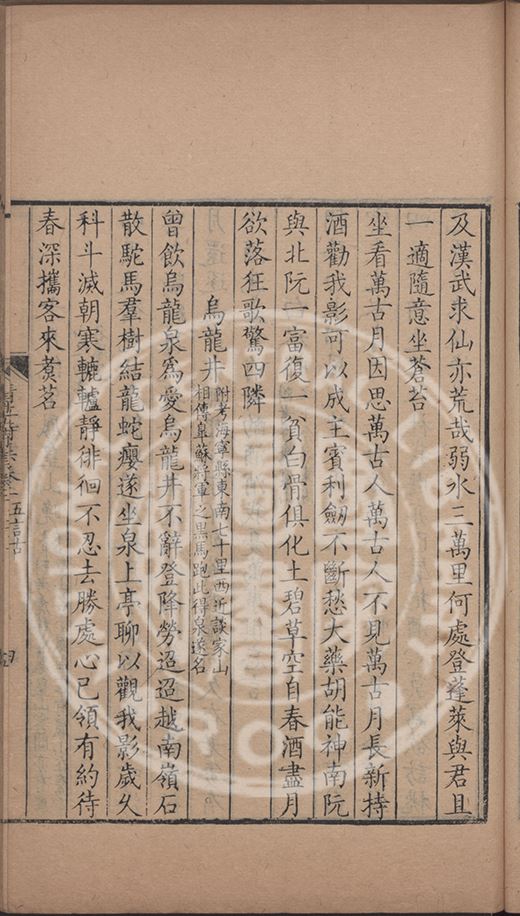 及漢武求仙亦荒哉弱水三萬里何處登蓬萊與君且
一適隨意坐蒼苔
坐看萬古月因思萬古人萬古人不見萬古月長新持
酒勸我影可以成主賓利劒不斷愁大藥胡能神南阮
與北阮一富復一貧白骨俱化土碧草空自春酒盡月
欲落狂歌驚四隣
烏龍井
附考海寧縣東南七十里西近談家山
相傳皐蘇將軍之黒馬跑此得泉遂名
曾飲烏龍泉爲愛烏龍井不辭登降勞迢迢越南嶺石
散駝馬羣樹結龍蛇癭遂坐泉上亭聊以觀我影歲久
科斗滅朝寒轆轤靜徘徊不忍去勝處心已領有約待
春深攜客來煑茗
五言古